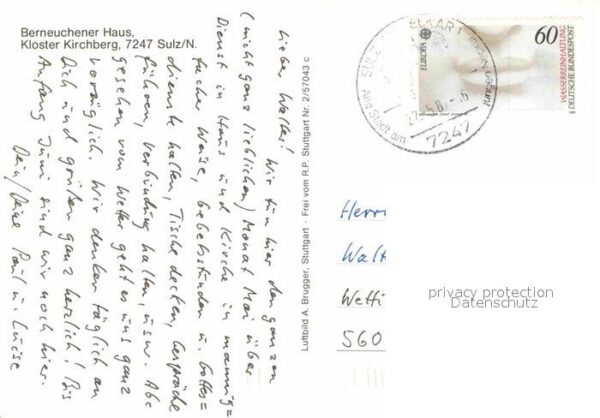 Berneuchener Haus,
Kloster Kirchberg, 7247 Sulz/N.
Liebe Walter! Wir tun hier den ganzen
(nicht ganz lieblichen) Monat Mai über
Dienst in Haus und Kirche in mannig=
facher Weise, Gebetsstunden u. Gottes=
dienste halten, Tische decken, Gespräche
führen, Verbindung halten, usw. Ab=
gesehen vom Wetter geht es uns ganz
vorzüglich. Wir denken täglich an
Dich und grüßen ganz herzlich! Bis
Anfang Juni sind wir noch hier.
Dein/Deine Paul u. Luise
Luftbild A. Brugger, Stuttgart - Frei vom R.P. Stuttgart Nr. 2/57043 c
EUROPA
60
WASSERREINHALTUNG
DEUTSCHE BUNDESPOST
SULZ
7247
Alte Stadt am jungen
Herrn
Walt
Wetti
560
privacy protection
Datenschutz